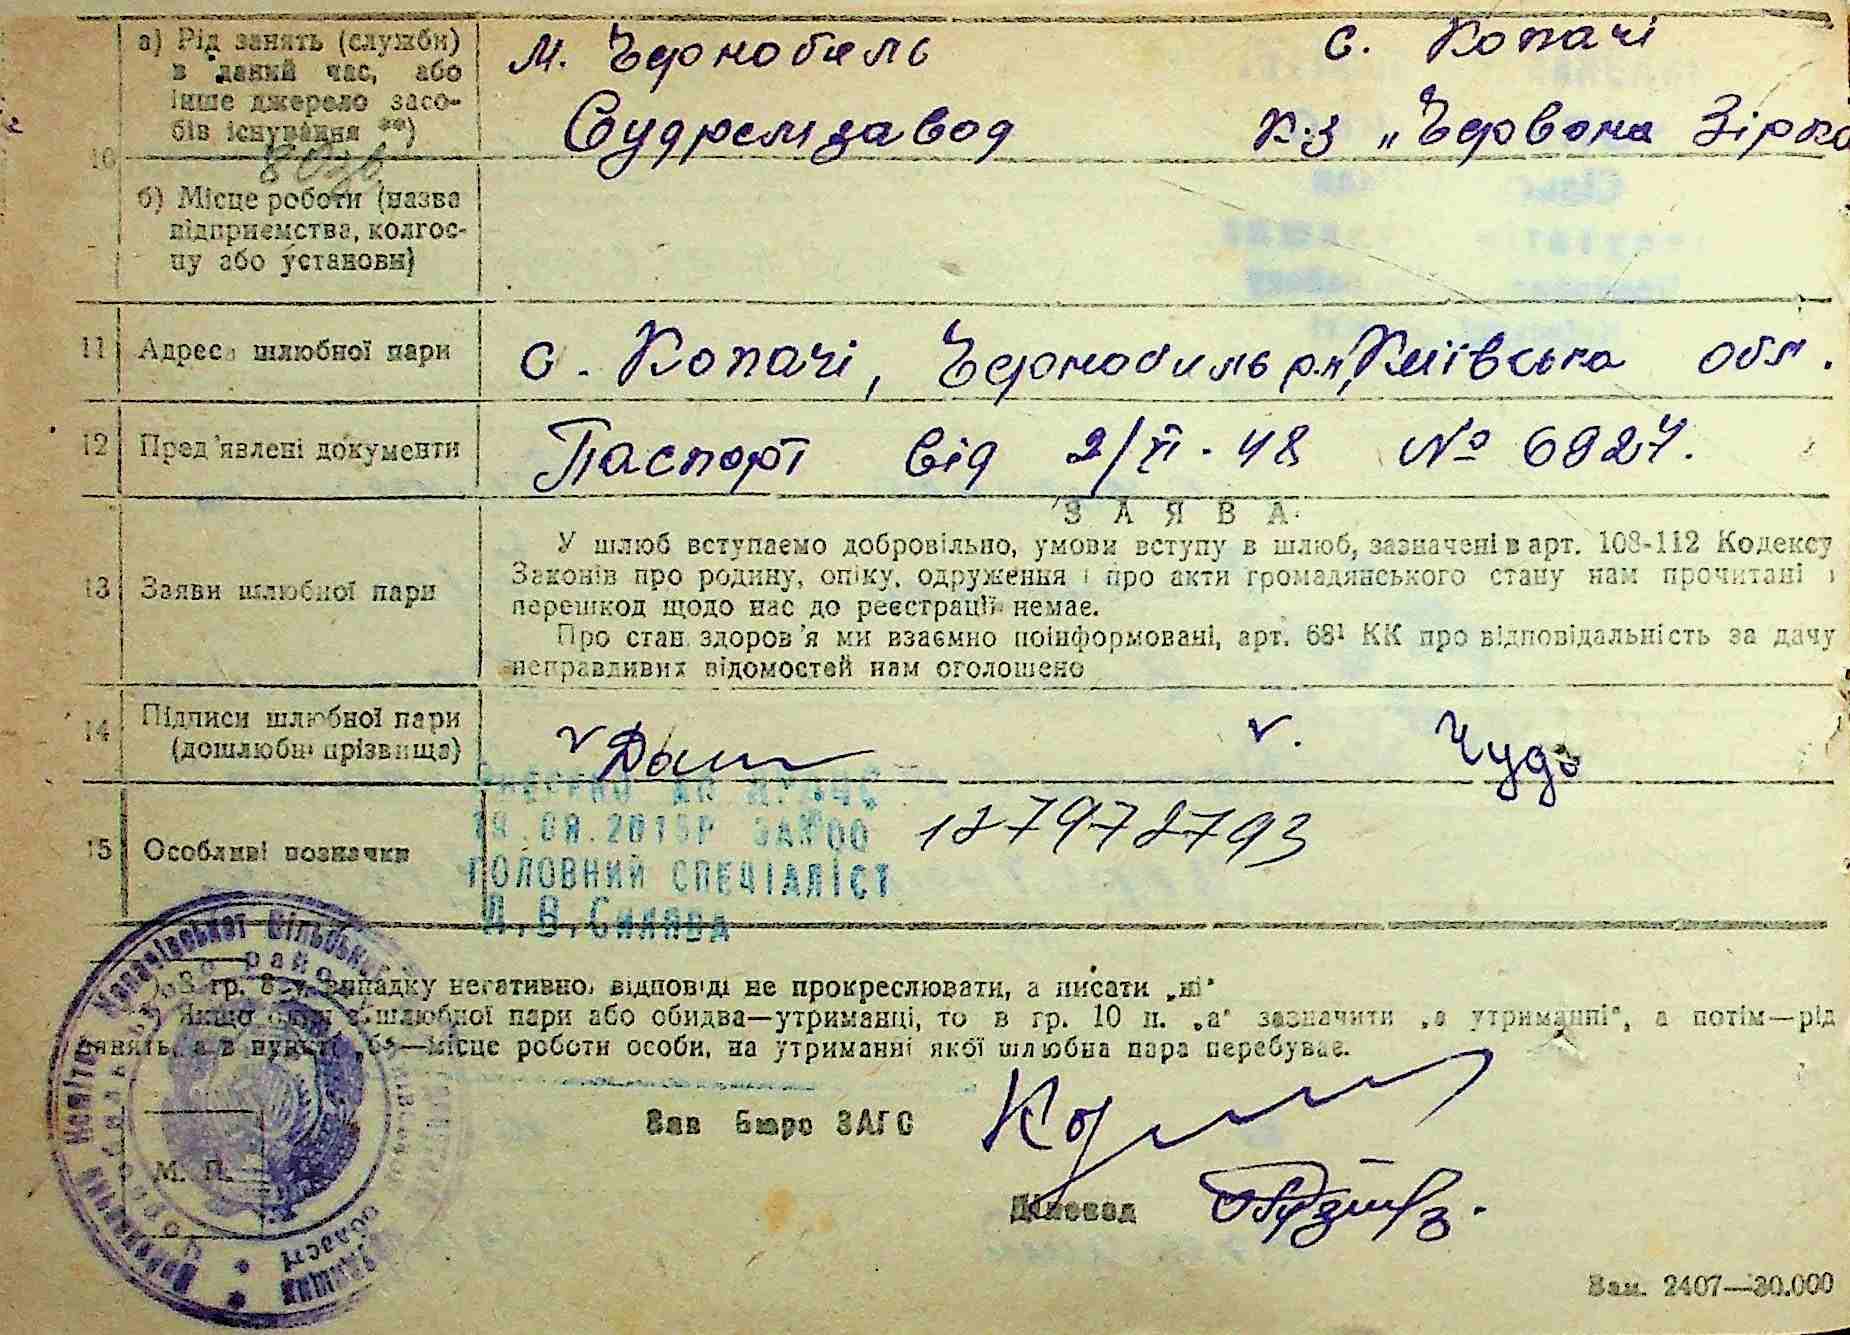 а) Рід занять (служби) в даний час, або інше джерело засобів існування **)
м. Чернобиль с. Копачі
Судремзавод к-з „Червона Зірка
10
б) Місце роботи (назва відприємства, колгоспу або установи)
11 Адреса шлюбної пари с. Копачі, Чернобиль р.н, Київська обл.
12 Пред'явлені документи Паспорт від 2/VI-48 № 6927.
ЗАЯВА
13 Заяви шлюбної пари
У шлюб вступаємо добровільно, умови вступу в шлюб, зазначені в арт. 108-112 Кодексу
Законів про родину, опіку, одруження і про акти громадянського стану нам прочитані і
перешкод щодо нас до реєстрації немає.
Про стан здоров'я ми взаємно поінформовані, арт. 68¹ КК про відповідальність за дачу
неправдивих відомостей нам оголошено
14 Підписи шлюбної пари (дошлюбні прізвища) v v. Чудо
15 Особливі позначки
ГОЛОВНИЙ СПЕЦІАЛІСТ
*) З гр. 8 у випадку негативної відповіді не прокреслювати, а писати „ні"
Якщо один з шлюбної пари або обидва—утриманці, то в гр. 10 п. „а" зазначити „а утриманні", а потім—рід
занять, а в пункті „б"—місце роботи особи, на утриманні якої шлюбна пара перебуває.
Зав Бюро ЗАГС
М. П.
Діловод
Зам. 2407—30.000